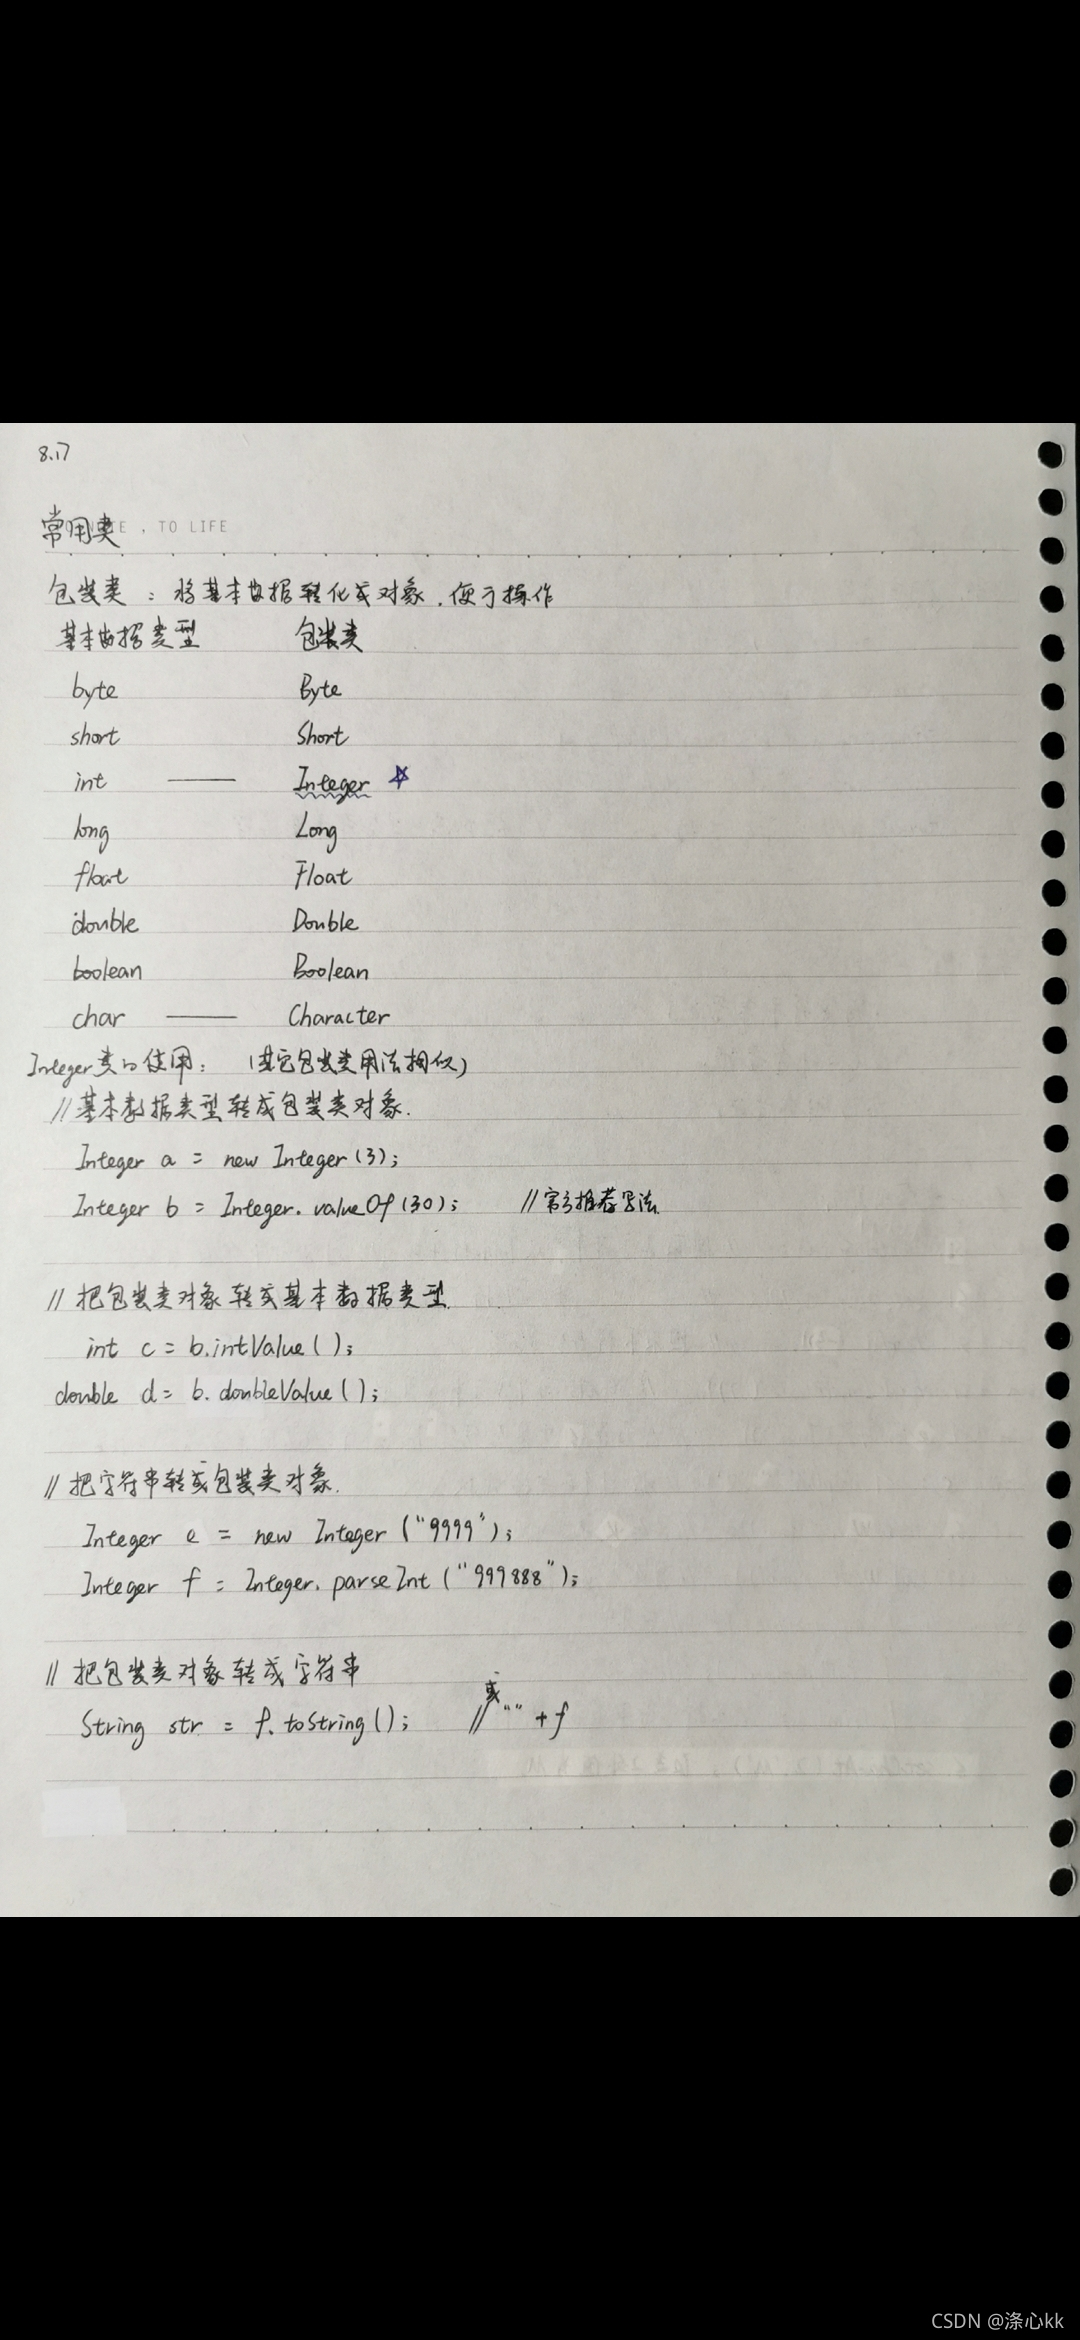 8.17
常用类
, TO LIFE
包装类：将基本数据转化成对象，便于操作
基本数据类型 包装类
byte Byte
short Short
int —— Integer ☆
long Long
float Float
double Double
boolean Boolean
char —— Character
Integer类的使用： (其它包装类用法相似)
//基本数据类型转成包装类对象.
Integer a = new Integer(3);
Integer b = Integer.valueOf(30); //官方推荐写法
//把包装类对象转成基本数据类型.
int c = b.intValue();
double d = b.doubleValue();
//把字符串转成包装类对象.
Integer e = new Integer("9999");
Integer f = Integer.parseInt("999888");
//把包装类对象转成字符串
String str = f.toString(); //或 ""+f
CSDN @涤心kk